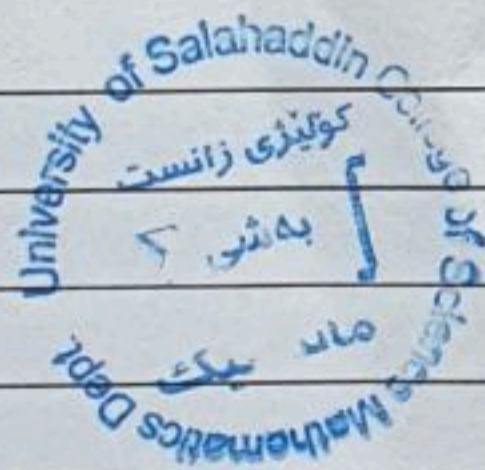 University of Salahaddin College of Science Mathematics Dept.
کولێژی زانست
بەشی